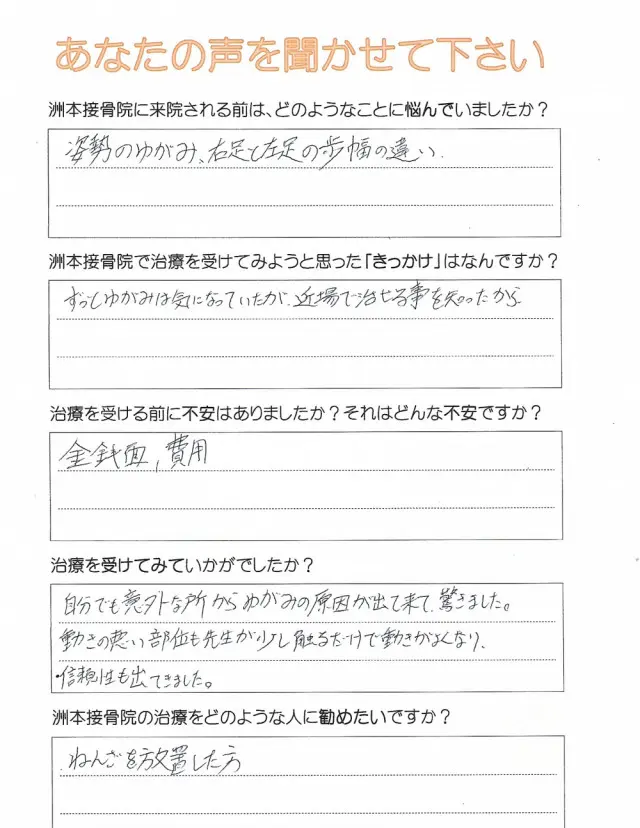 あなたの声を聞かせて下さい
洲本接骨院に来院される前は、どのようなことに悩んでいましたか？
姿勢のゆがみ、右足と左足の歩幅の違い
洲本接骨院で治療を受けてみようと思った「きっかけ」はなんですか？
ずっとゆがみは気になっていたが、近場で治せる事を知ったから
治療を受ける前に不安はありましたか？それはどんな不安ですか？
金銭面，費用
治療を受けてみていかがでしたか？
自分でも意外な所からゆがみの原因が出て来て、驚きました。
動きの悪い部位も先生が少し触るだけで動きがよくなり、
信頼性も出てきました。
洲本接骨院の治療をどのような人に勧めたいですか？
ねんざを放置した方